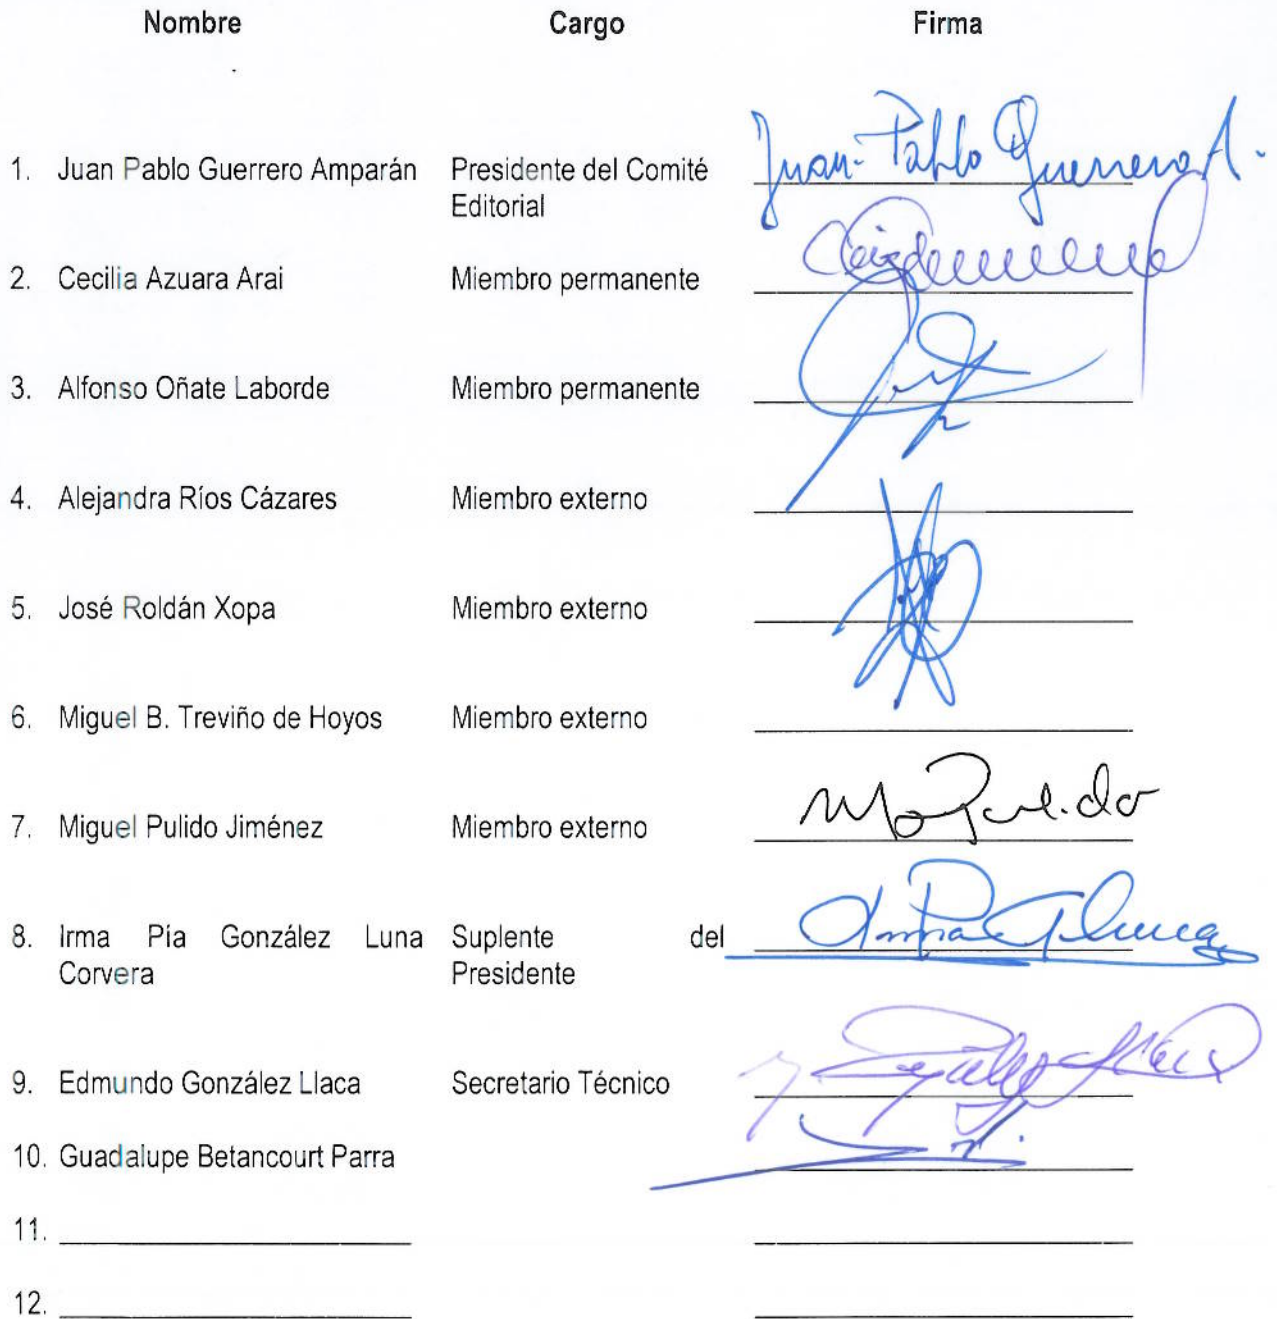 Nombre Cargo Firma
1. Juan Pablo Guerrero Amparán Presidente del Comité Juan Pablo Guerrero A.
Editorial
2. Cecilia Azuara Arai Miembro permanente
3. Alfonso Oñate Laborde Miembro permanente
4. Alejandra Ríos Cázares Miembro externo
5. José Roldán Xopa Miembro externo
6. Miguel B. Treviño de Hoyos Miembro externo
7. Miguel Pulido Jiménez Miembro externo
8. Irma Pía González Luna Suplente del
Corvera Presidente
9. Edmundo González Llaca Secretario Técnico
10. Guadalupe Betancourt Parra
11.
12.